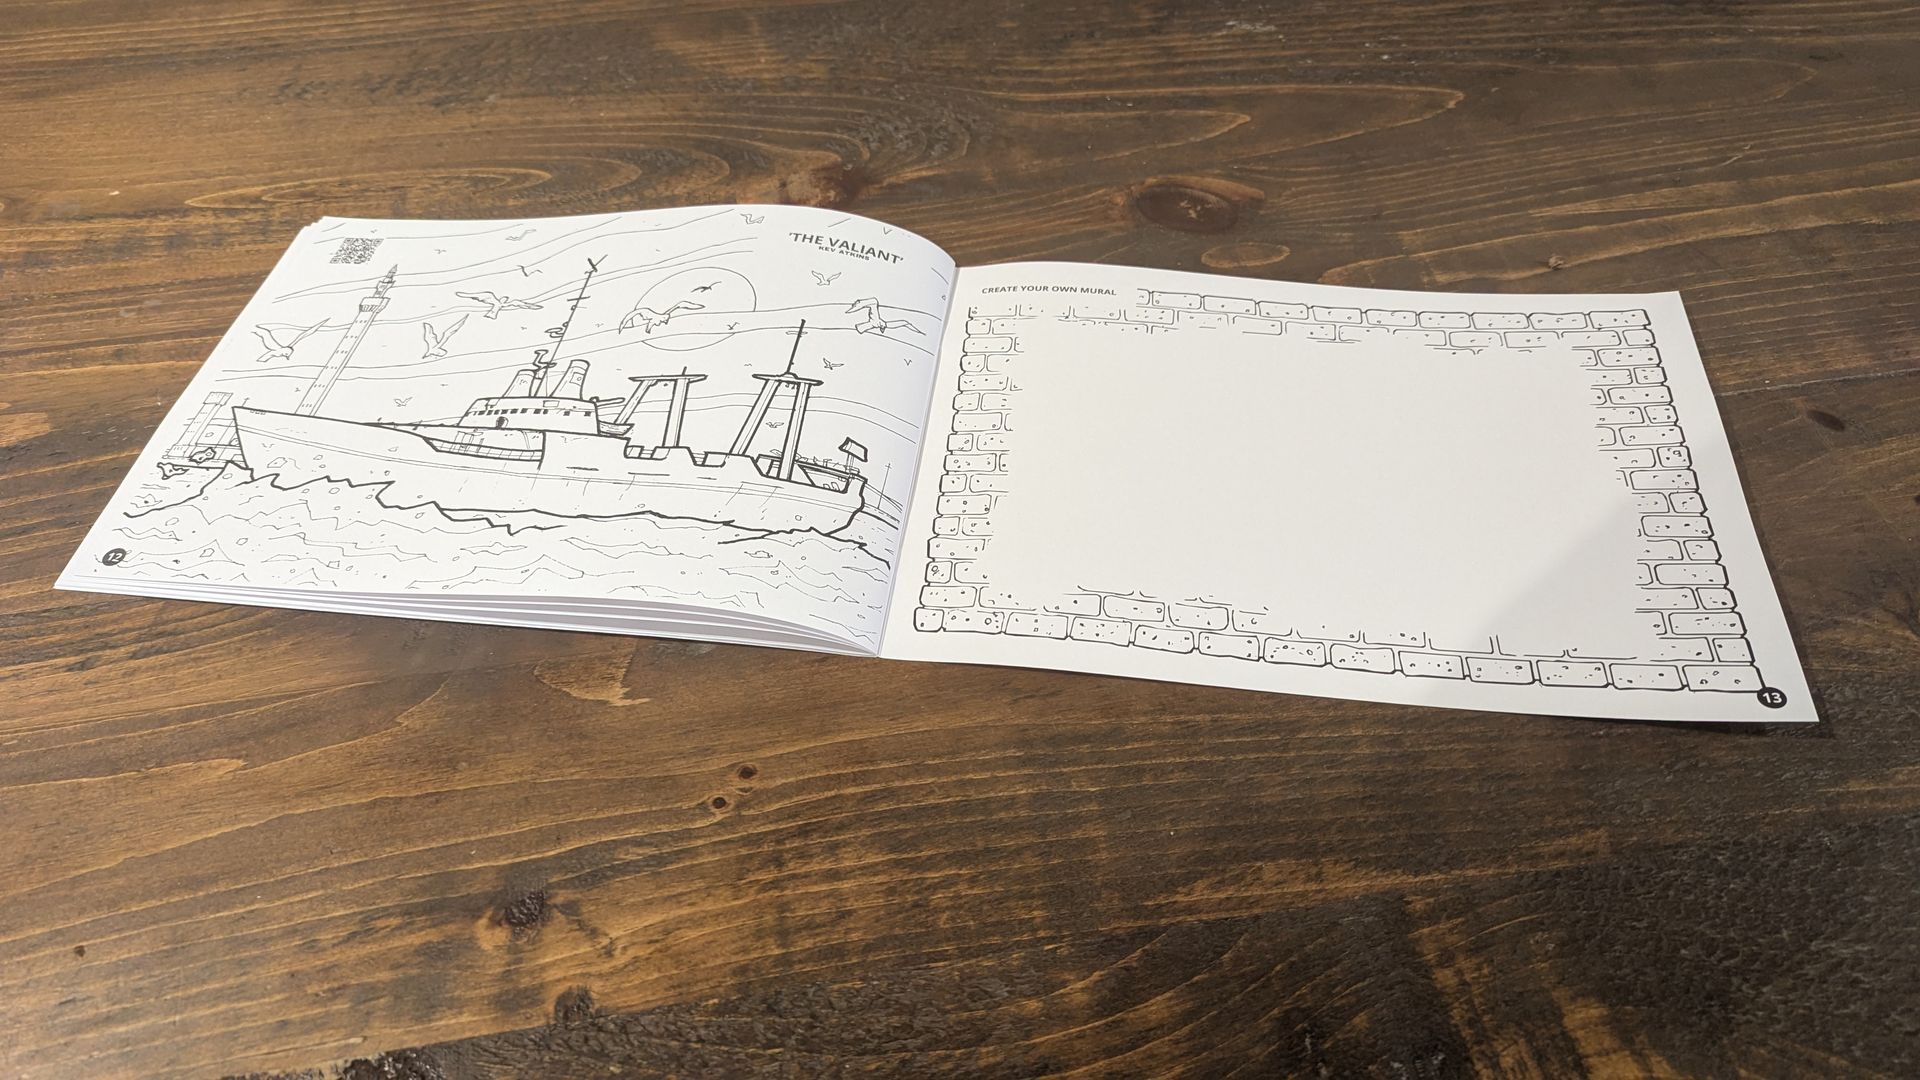 'THE VALIANT'
KEV ATKINS
12
CREATE YOUR OWN MURAL
13